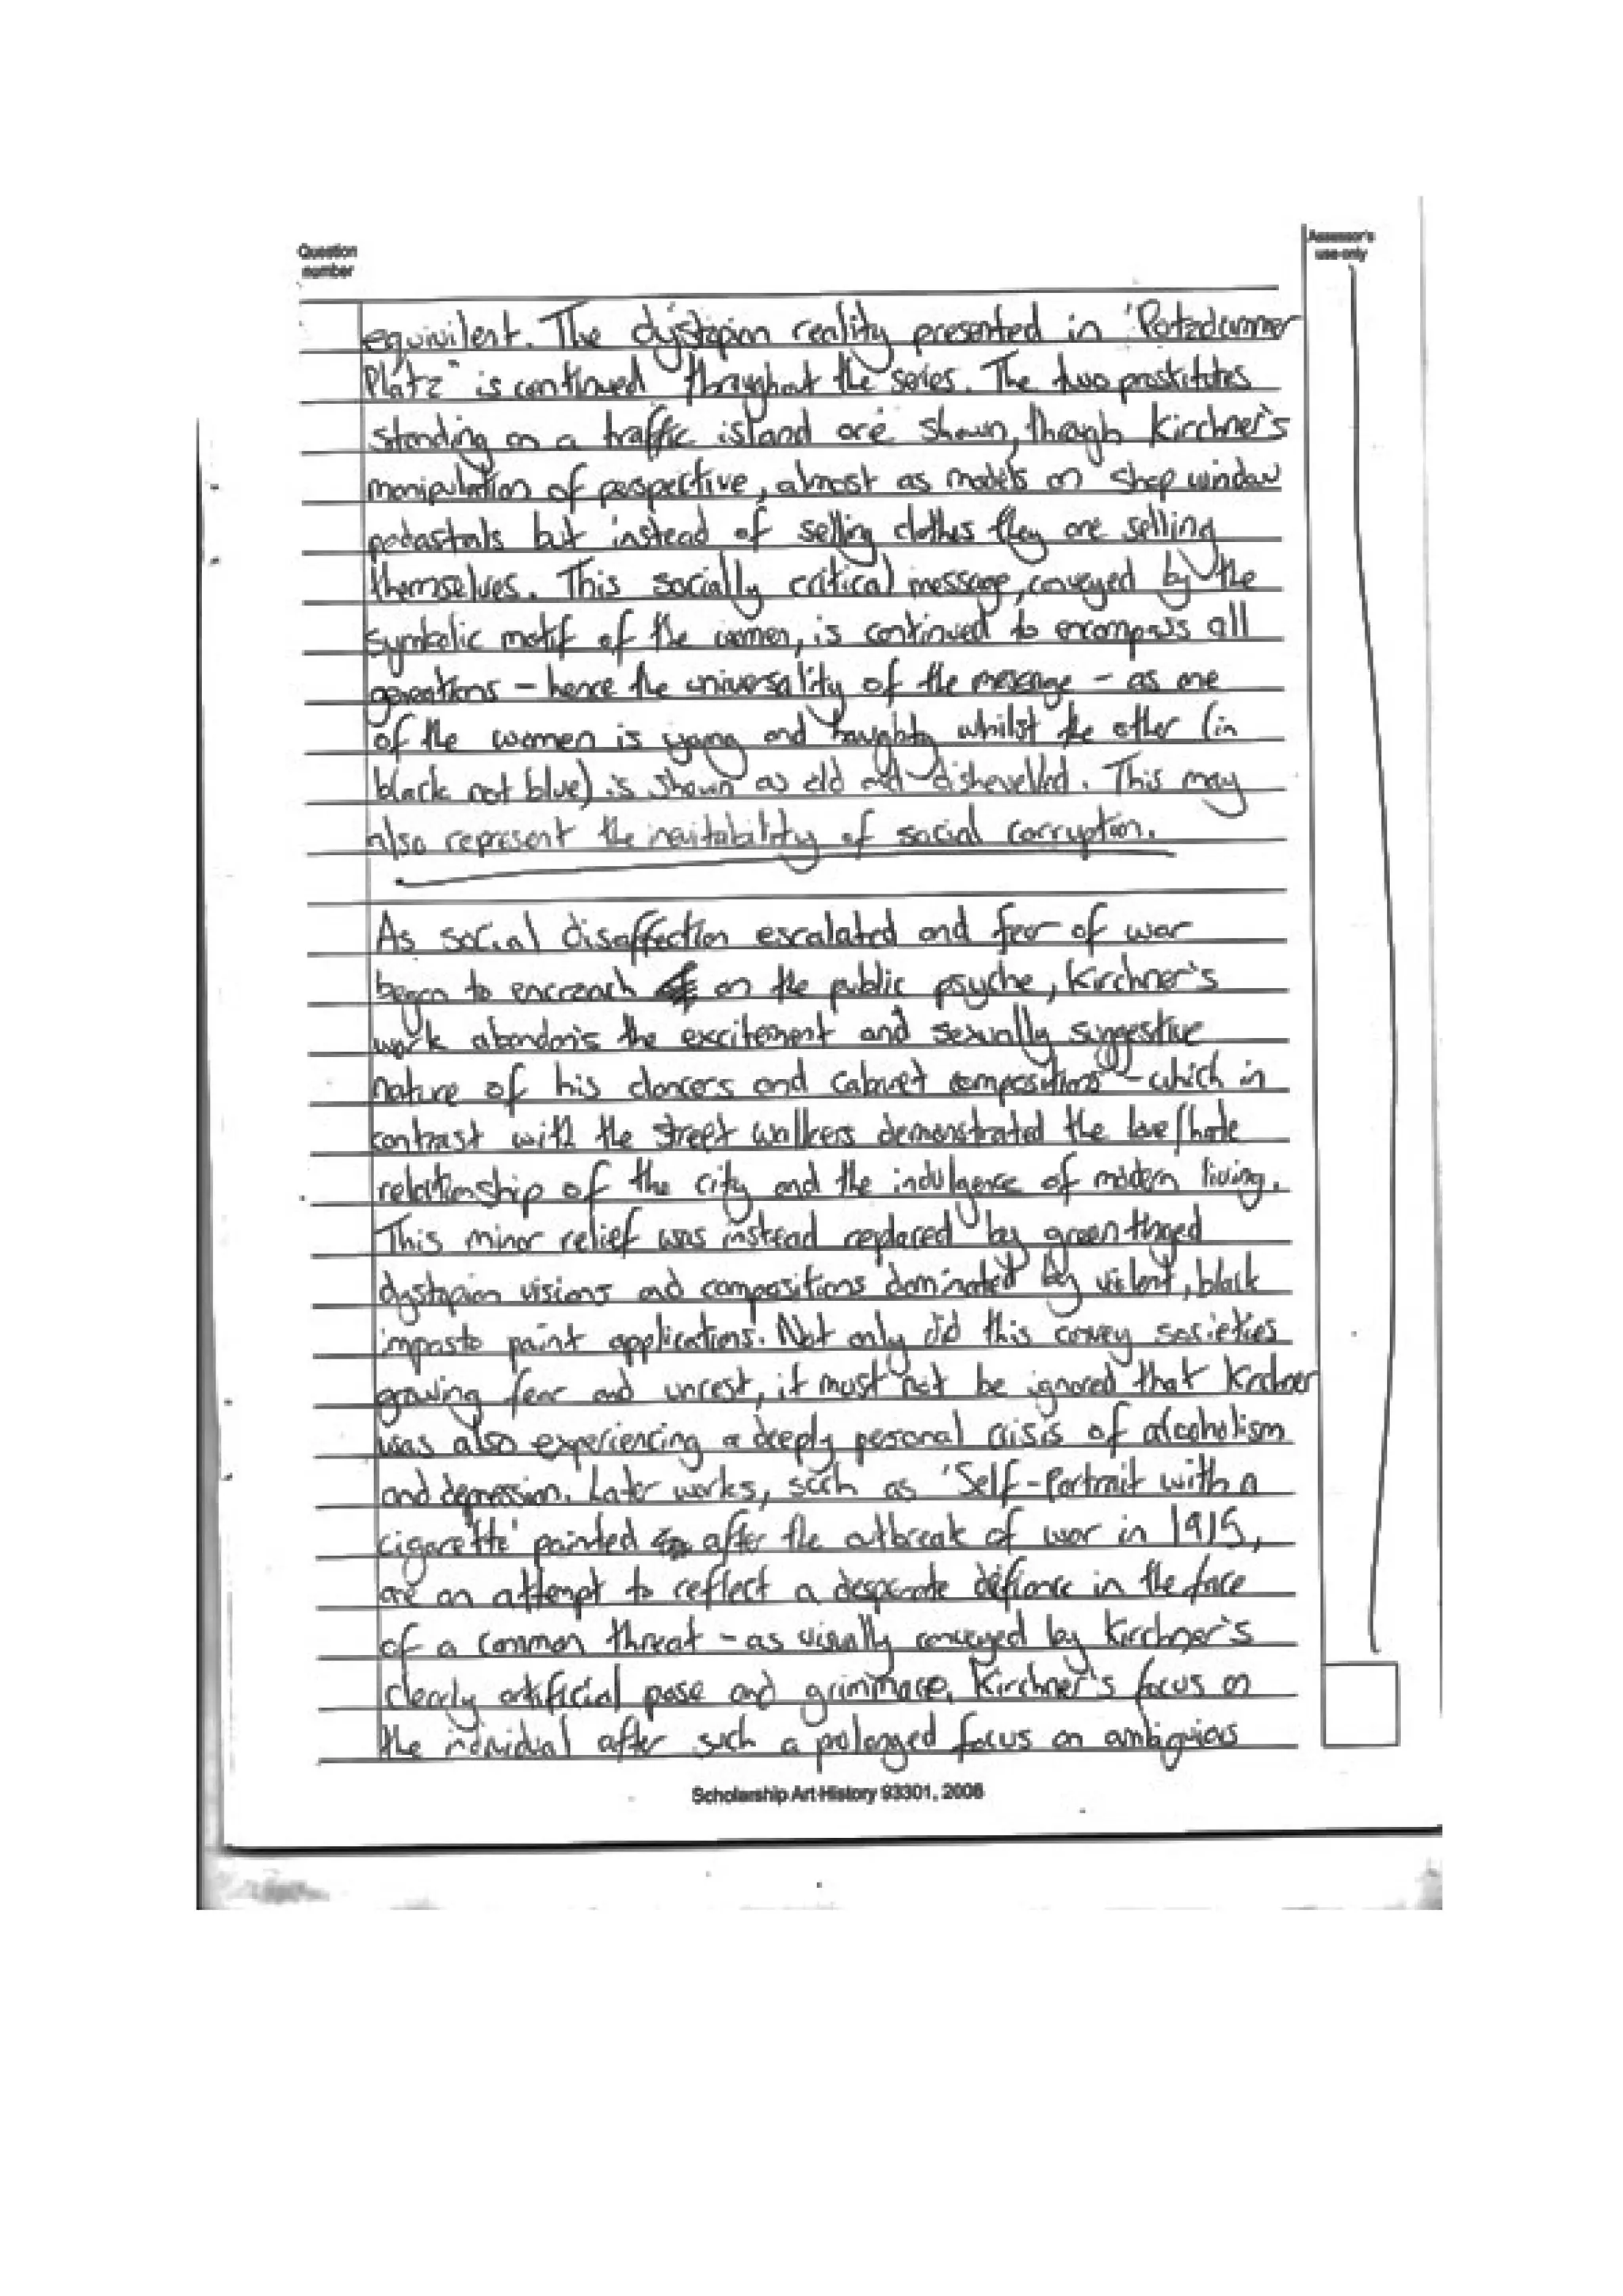 Question
number
Assessor's
use only
equivilent. The dystopian reality presented in 'Potzdammer
Platz" is continued throughout the series. The two prostitutes
standing on a traffic island are shown, though Kirchner's
manipulation of perspective, almost as models on shop window
pedastals but instead of selling clothes they are selling
themselves. This socially critical message, conveyed by the
symbolic motif of the women, is continued to encompass all
generations – hence the universality of the message – as one
of the women is young and haughty whilst the other (in
black not blue) is shown as old and dishevelled. This may
also represent the inevitability of social corruption.
As social disaffection escalated and fear of war
began to encroach on the public psyche, Kirchner's
work abandons the excitement and sexually suggestive
nature of his dancers and cabaret compositions – which in
contrast with the street walkers demonstrated the love/hate
relationship of the city and the indulgence of modern living.
This minor relief was instead replaced by green tinged
dystopian visions and compositions dominated by violent, black
impasto paint applications. Not only did this convey societies
growing fear and unrest, it must not be ignored that Kirchner
was also experiencing a deeply personal crisis of alcoholism
and depression. Later works, such as 'Self-Portrait with a
cigarette' painted after the outbreak of war in 1915,
are an attempt to reflect a desperate defiance in the face
of a common threat – as visually conveyed by Kirchner's
clearly artificial pose and grimmace. Kirchner's focus on
the individual after such a prolonged focus on ambiguious
Scholarship Art History 93301, 2006